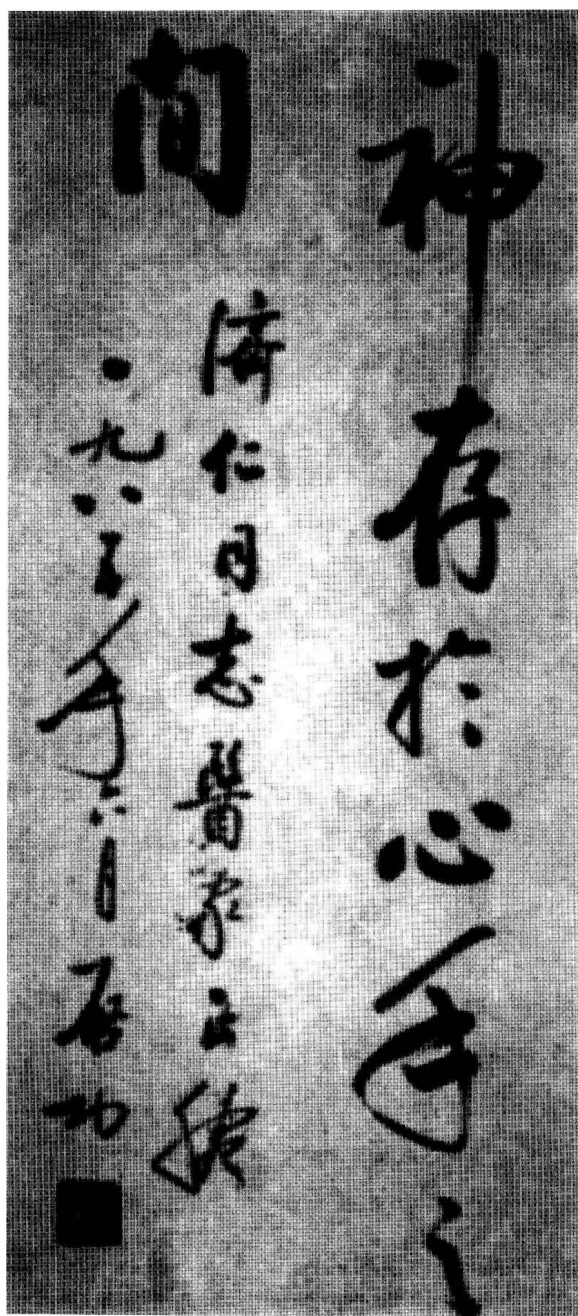 神存於心手之
間
濟仁同志醫家正
一九八五年六月 啟功